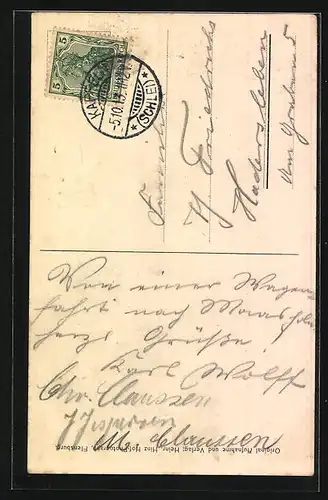 5 5
KAPPELN
-5.10.13
* (SCHLEI) *
Familie
H. Friedrichs
Hadersleben
Am Graben 5
Von einer Wagen
fahrt nach Maasholm
herzl Grüße
Karl Wolff
Chr. Claussen
J Jespersen
M. Claussen
Original Aufnahme und Verlag: Heinr. Hinz Hof-Photograph, Flensburg.